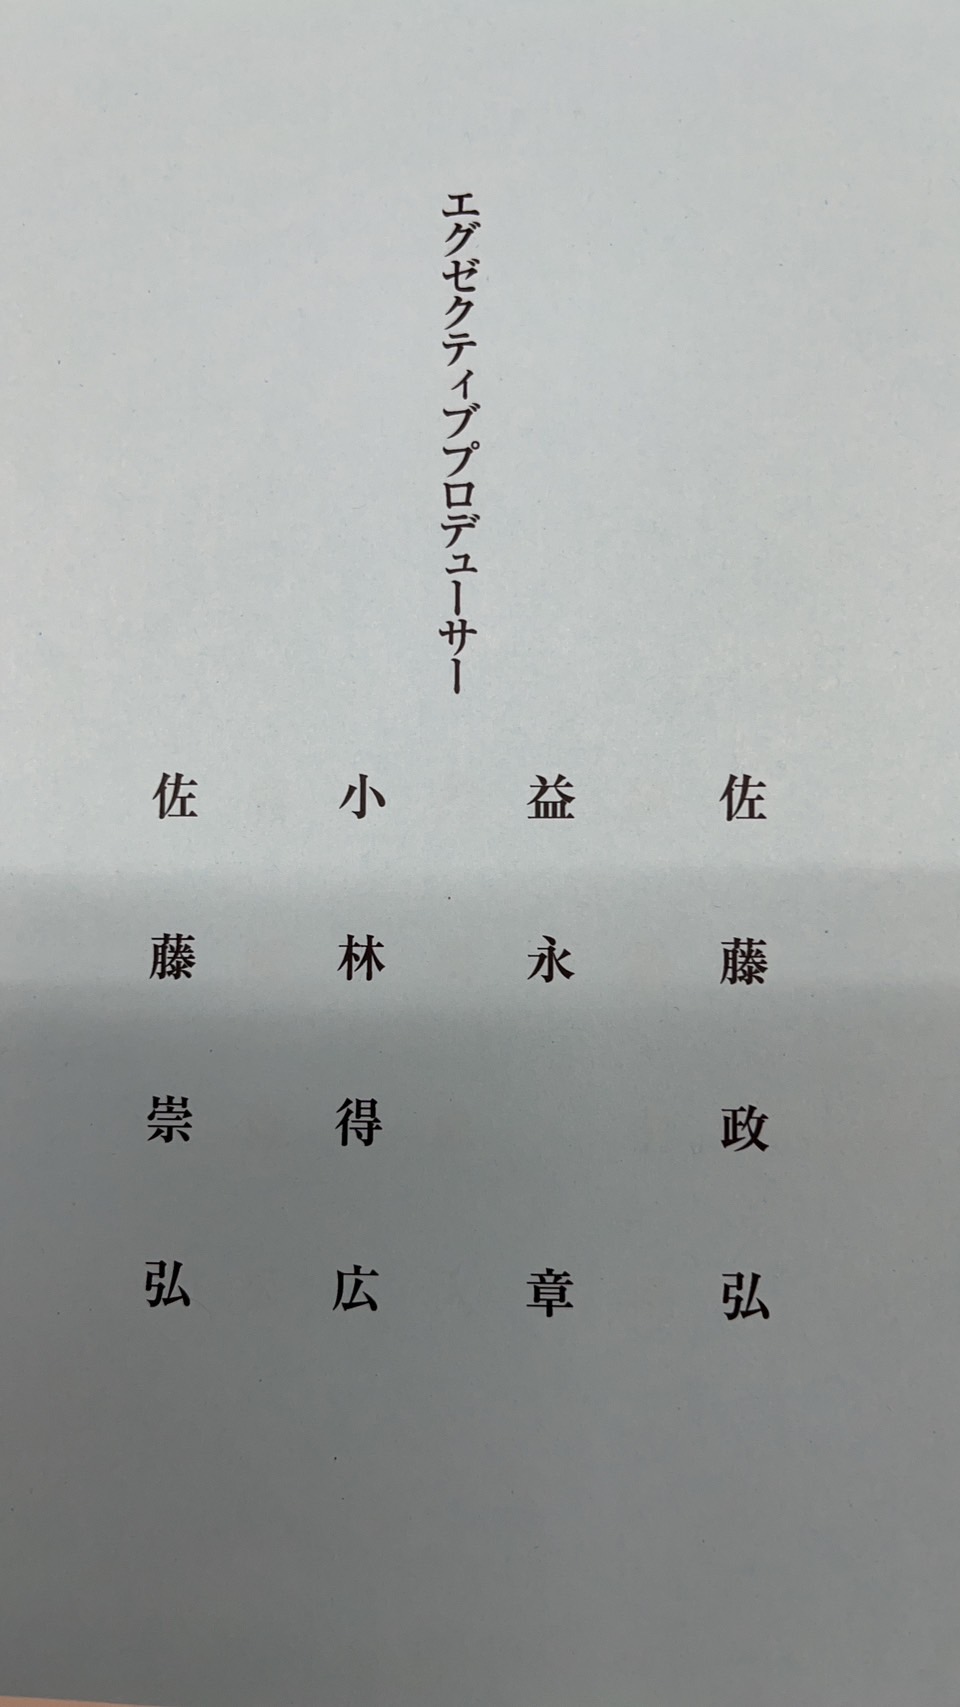 エグゼクティブプロデューサー
佐藤政弘
益永章
小林得広
佐藤崇弘